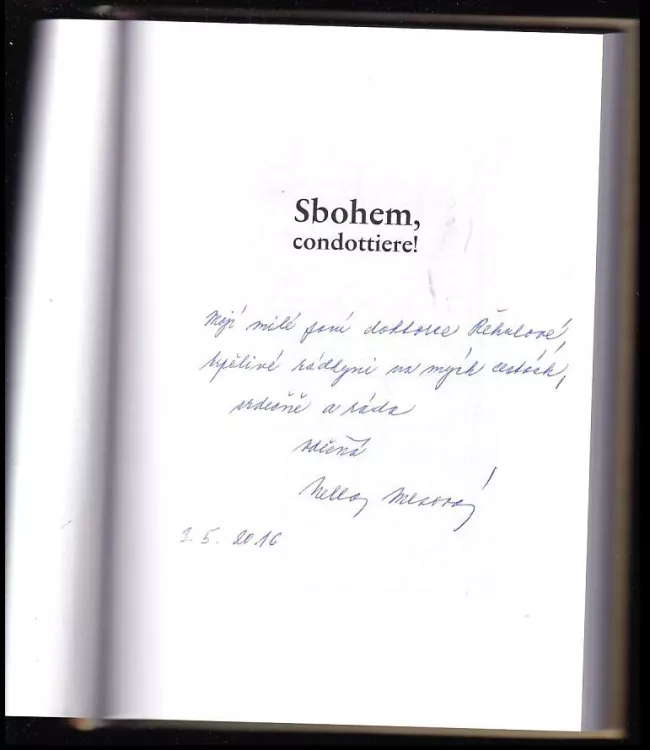 Sbohem,
condottiere!
Mojí milé paní doktorce Řehulkové,
trpělivé rádkyni na mých cestách,
srdečně a ráda
vděčná
Nelly Mlsová
2. 5. 2016